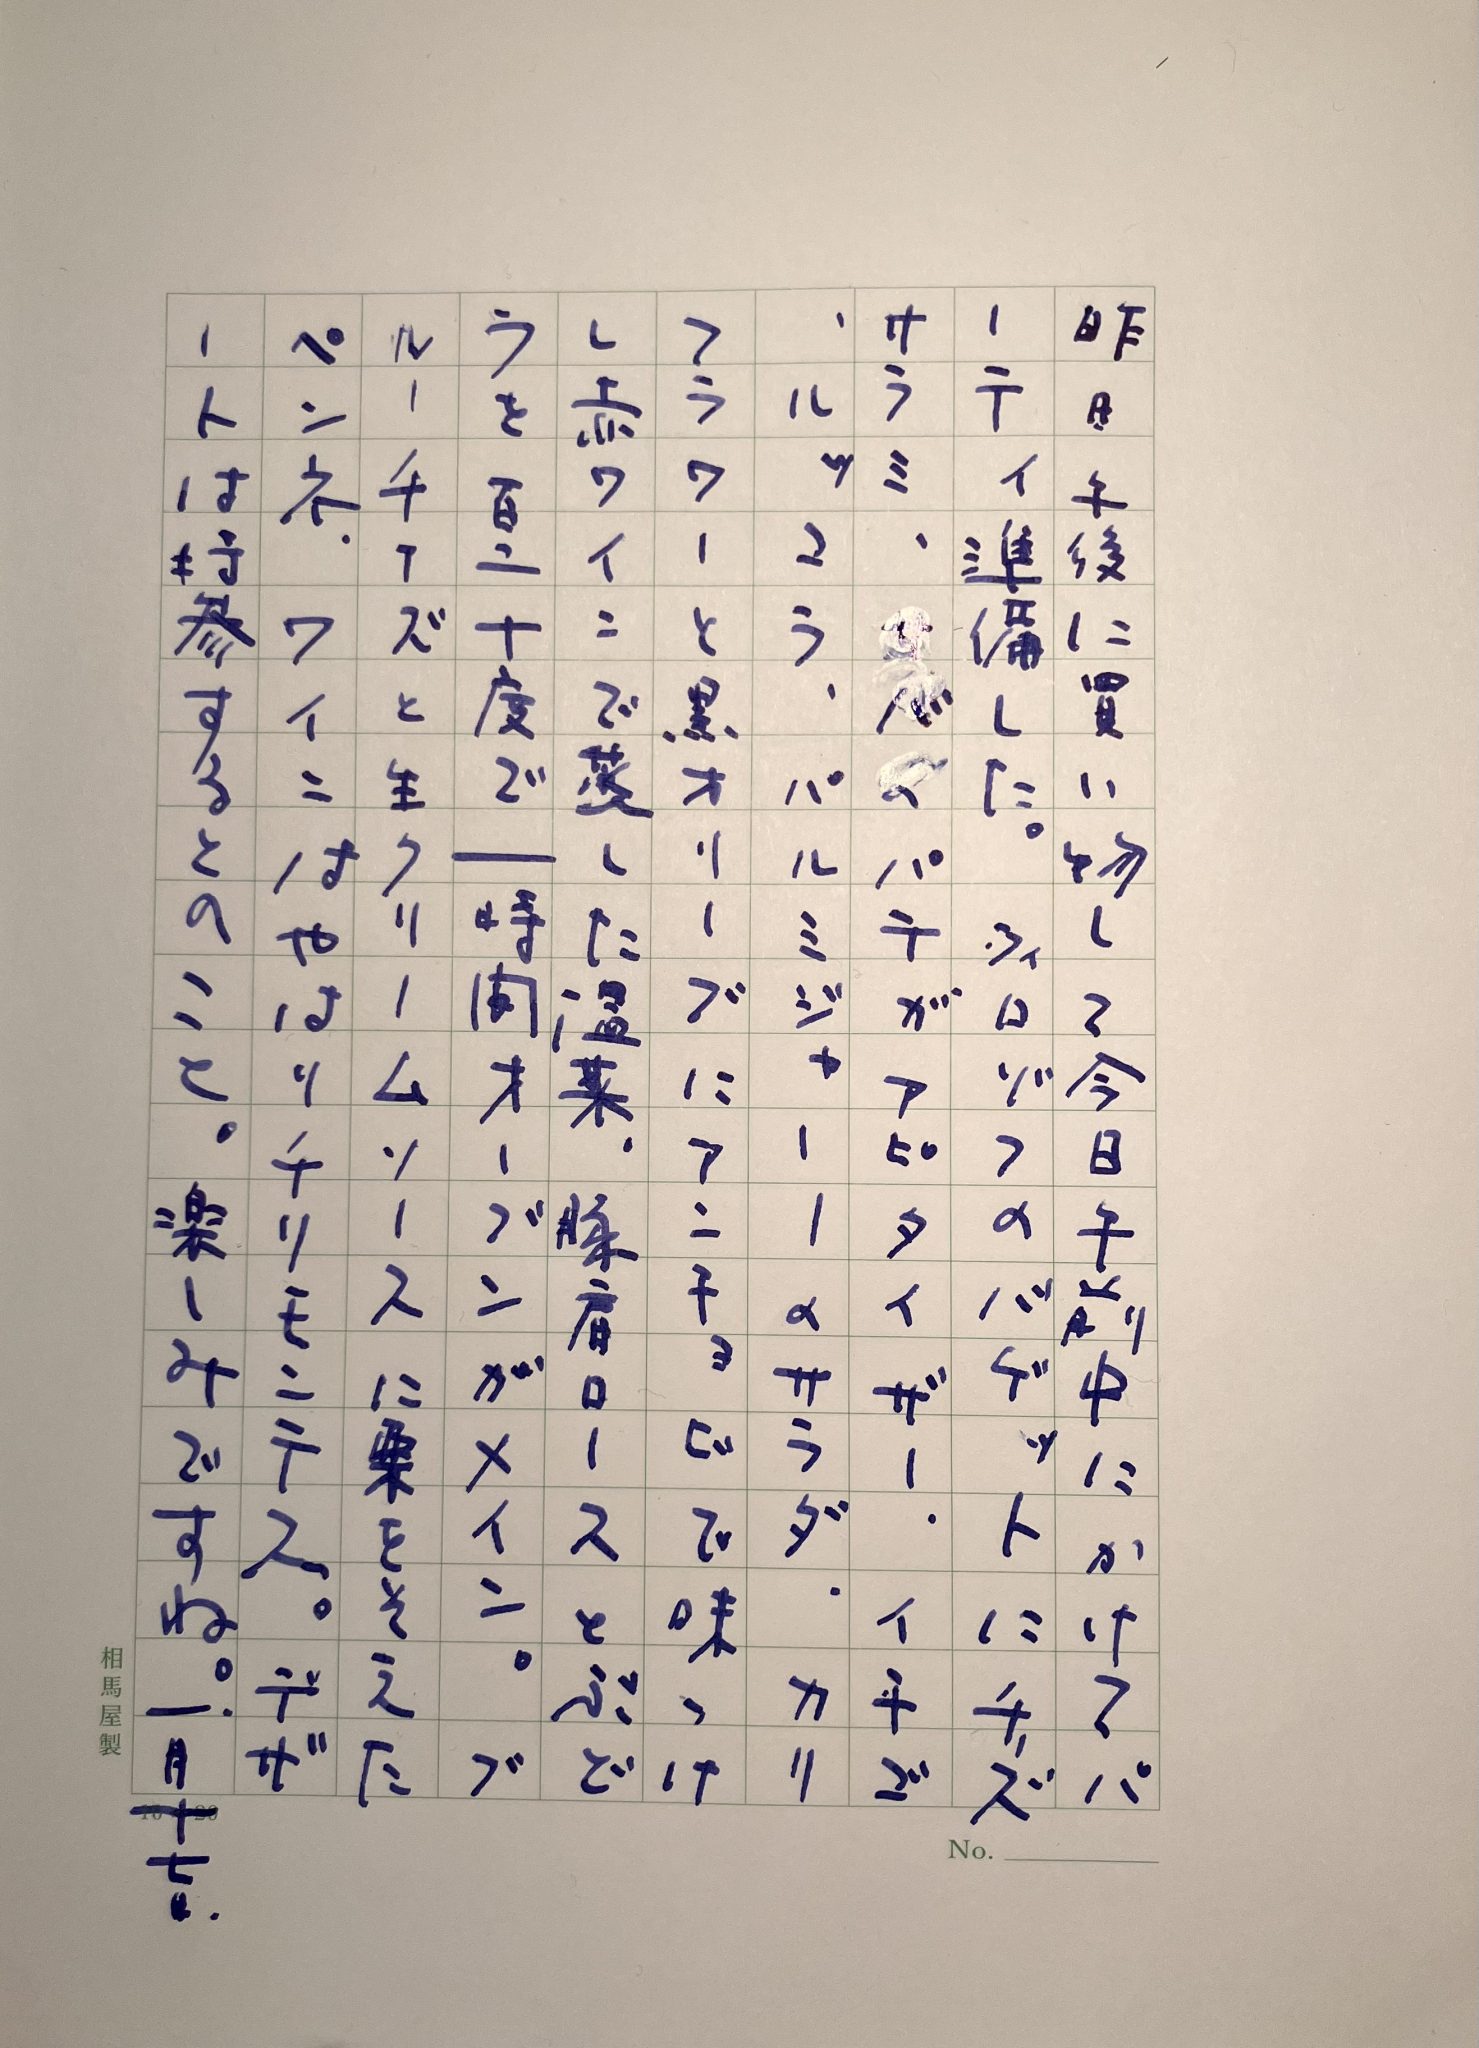 昨日午後に買い物して今日午前中にかけてパ
ーティ準備した。フィロゾフのバゲットにチーズ
サラミ、豚のパテがアピタイザー。イチゴ
、ルッコラ、パルミジャーノのサラダ。カリ
フラワーと黒オリーブにアンチョビで味つけ
し赤ワインで蒸した温菜。豚肩ロースとぶど
うを百二十度で一時間オーブンがメイン。ブ
ルーチーズと生クリームソースに栗をそえた
ペンネ。ワインはやはりチリモンテス。デザ
ートは持参するとのこと。楽しみですね。一月十七日.
相馬屋製
No.
10 20